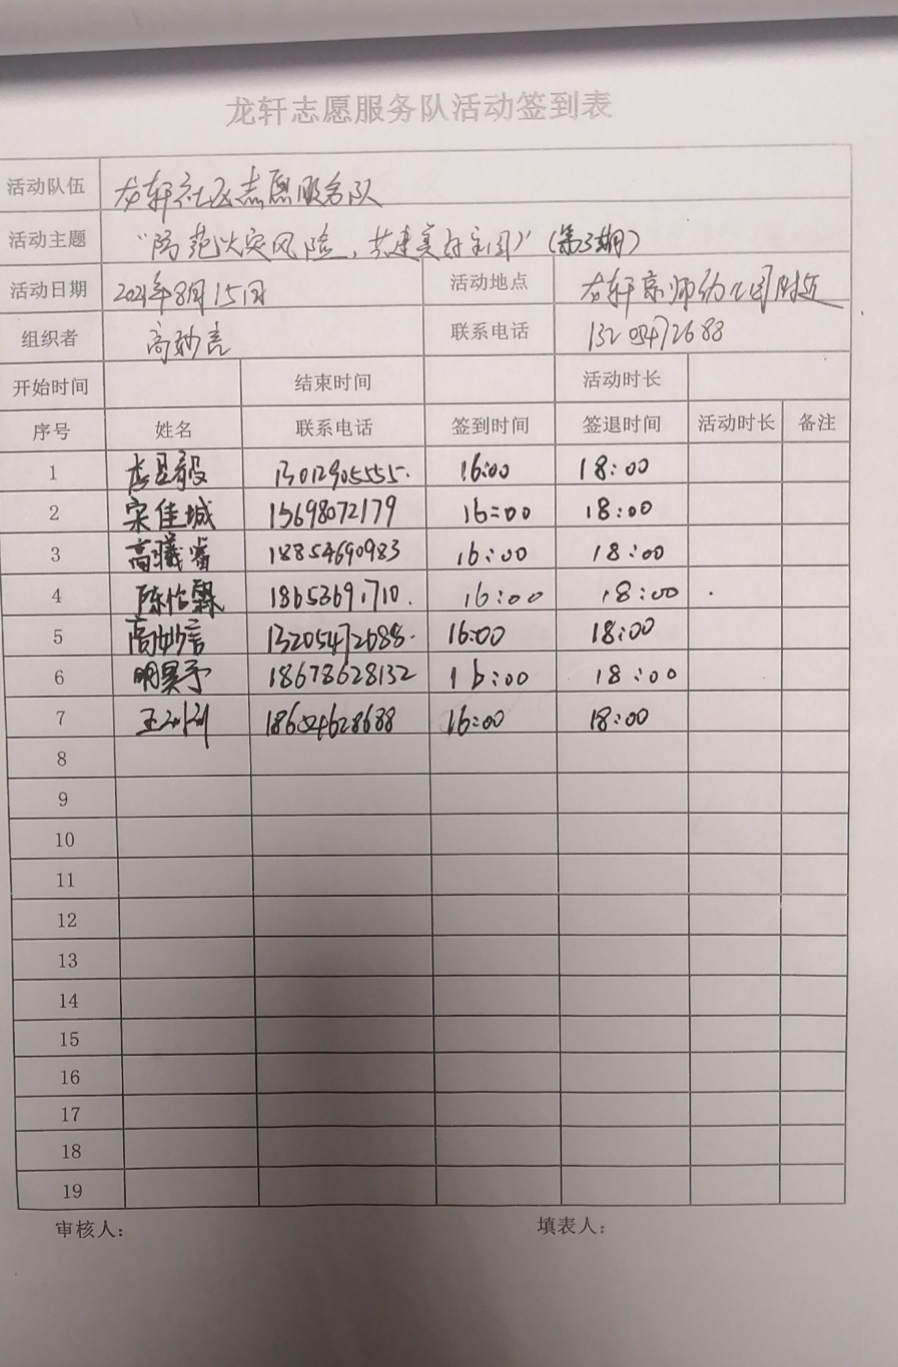 龙轩志愿服务队活动签到表
活动队伍 龙轩社区志愿服务队
活动主题 “防范火灾风险,共建美好家园”(第3期)
活动日期 2021年8月15日 活动地点 龙轩京师幼儿园附近
组织者 高妙言 联系电话 13205472688
开始时间 结束时间 活动时长
序号 姓名 联系电话 签到时间 签退时间 活动时长 备注
1 13012905555. 16:00 18:00
2 宋佳城 15698072179 16:00 18:00
3 高曦睿 18854690983 16:00 18:00
4 陈怡霖 18653691710. 16:00 18:00
5 高妙言 13205472688. 16:00 18:00
6 明昊予 18678628132 16:00 18:00
7 16:00 18:00
8
9
10
11
12
13
14
15
16
17
18
19
审核人: 填表人: